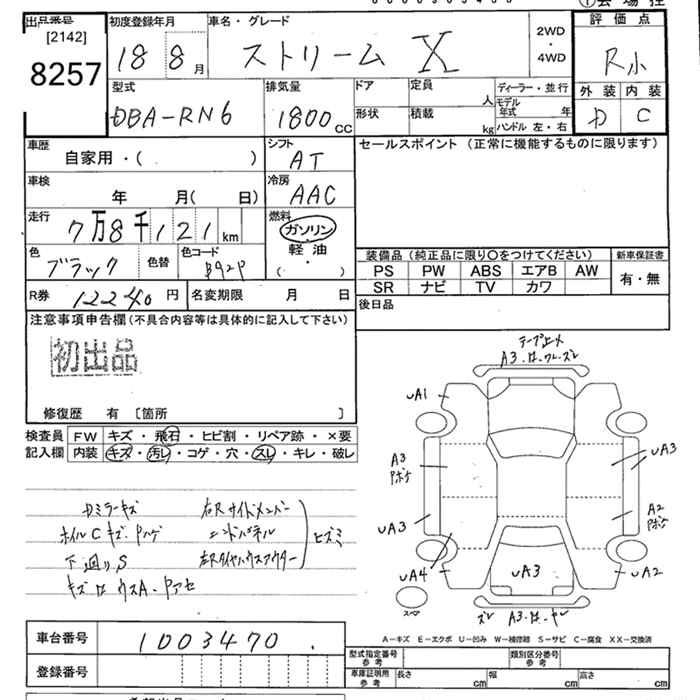 出品番号 初度登録年月 車名・グレード 評価点
[2142] 18 8月 ストリーム X 2WD・4WD R小
8257
型式 排気量 ドア 定員 人 ディーラー・並行 外装 内装
DBA-RN6 1800cc 形状 積載 kg モデル年式 年 ハンドル 左・右 D C
車歴 シフト セールスポイント (正常に機能するものに限ります)
自家用・( ) AT
車検 年 月( 日) 冷房 AAC
走行 7万8千121km 燃料 ガソリン・軽油
( ・ )
色 ブラック 色替 色コード B92P
装備品 (純正品に限り○をつけてください) 新車保証書
PS PW ABS エアB AW 有・無
SR ナビ TV カワ
R券 12240円 名変期限 月 日 後日品
注意事項申告欄(不具合内容等は具体的に記入して下さい)
初出品
修復歴 有 [箇所 ]
検査員記入欄 FW キズ・飛石・ヒビ割・リペア跡・×要
内装 キズ・汚レ・コゲ・穴・スレ・キレ・破レ
ホイルCキズ・Pハゲ
下廻りS
右Rサイドメンバー
エンドパネル
ヒズミ
UA1
A3
UA3
UA3
A2
UA3
UA4
UA2
スペア
A-キズ E-エクボ U-凹み W-補修跡 S-サビ C-腐食 XX-交換済
車台番号 1003470
登録番号
型式指定番号 参考 類別区分番号 参考
車庫証明用 参考 長さ cm 幅 cm 高さ cm